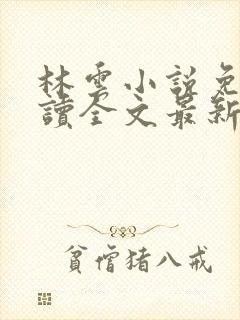 林雲小說免
讀全文最新
貧僧猪八戒